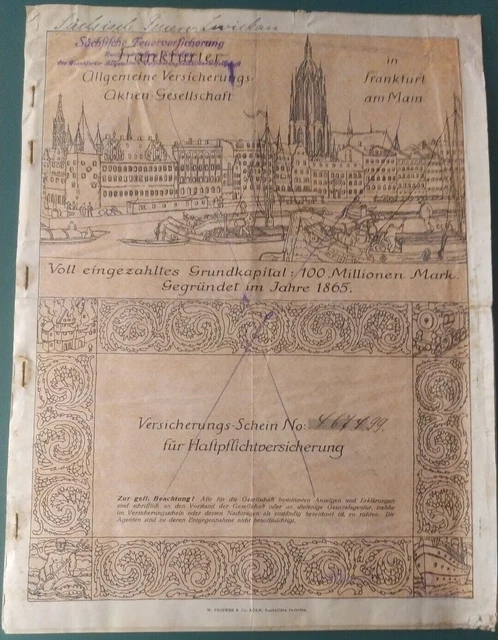 Sächsisch Feuer Zwickau
Sächsische Feuerversicherung
Frankfurter
Allgemeine Versicherungs-
Aktien-Gesellschaft
in
Frankfurt
am Main
Voll eingezahltes Grundkapital: 100 Millionen Mark.
Gegründet im Jahre 1865.
Versicherungs-Schein No:
für Haftpflichtversicherung
Zur gefl. Beachtung! Alle für die Gesellschaft bestimmten Anzeigen und Erklärungen
sind schriftlich an den Vorstand der Gesellschaft oder an diejenige Generalagentur, welche
im Versicherungsschein oder dessen Nachträgen als zuständig bezeichnet ist, zu richten. Die
Agenten sind zu deren Entgegennahme nicht bevollmächtigt.